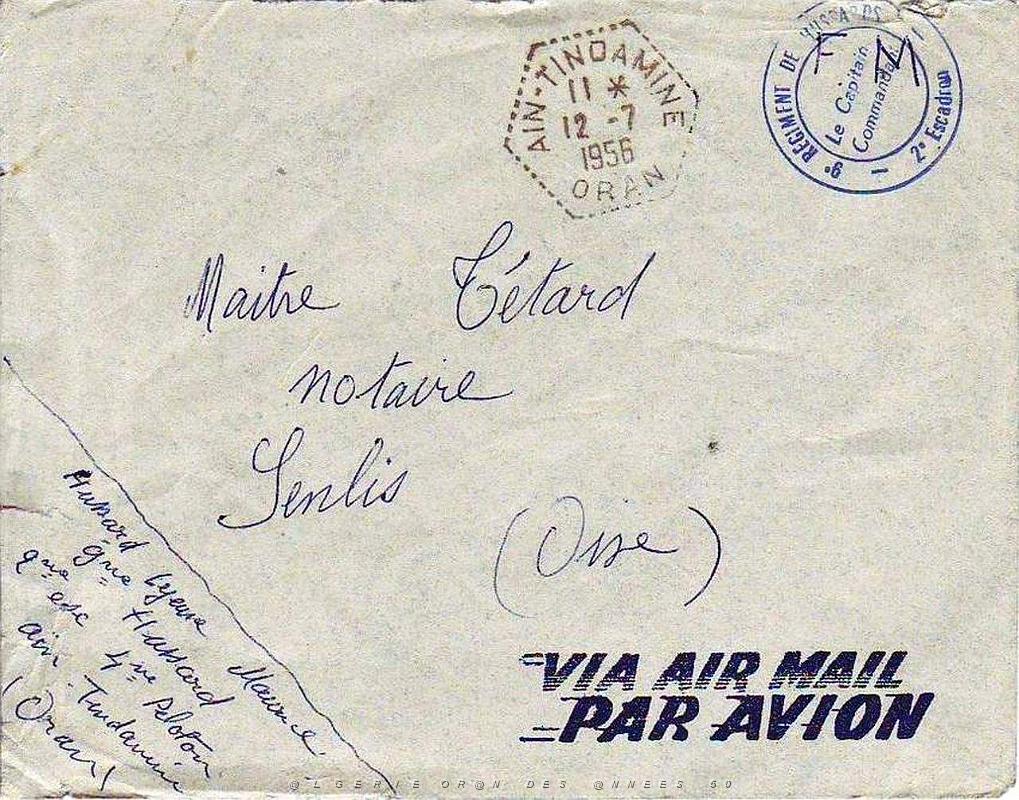 AIN-TINDAMINE
11 *
12 -7
1956
ORAN
9e REGIMENT DE HUSSARDS
Le Capitain
Commandant
2e Escadron
F M
Maitre Tétard
notaire
Senlis
(Oise)
Hussard Maurice
9me Hussard
2me esc 4me Peloton
Ain-Tindamine
(Oran)
VIA AIR MAIL
PAR AVION
@LGERIE OR@N DES @NNEES 50